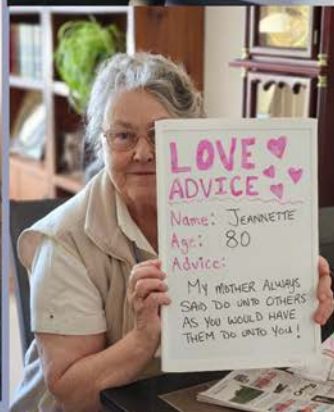 LOVE
ADVICE
Name: JEANNETTE
Age: 80
Advice:
MY MOTHER ALWAYS
SAID DO UNTO OTHERS
AS YOU WOULD HAVE
THEM DO UNTO YOU!